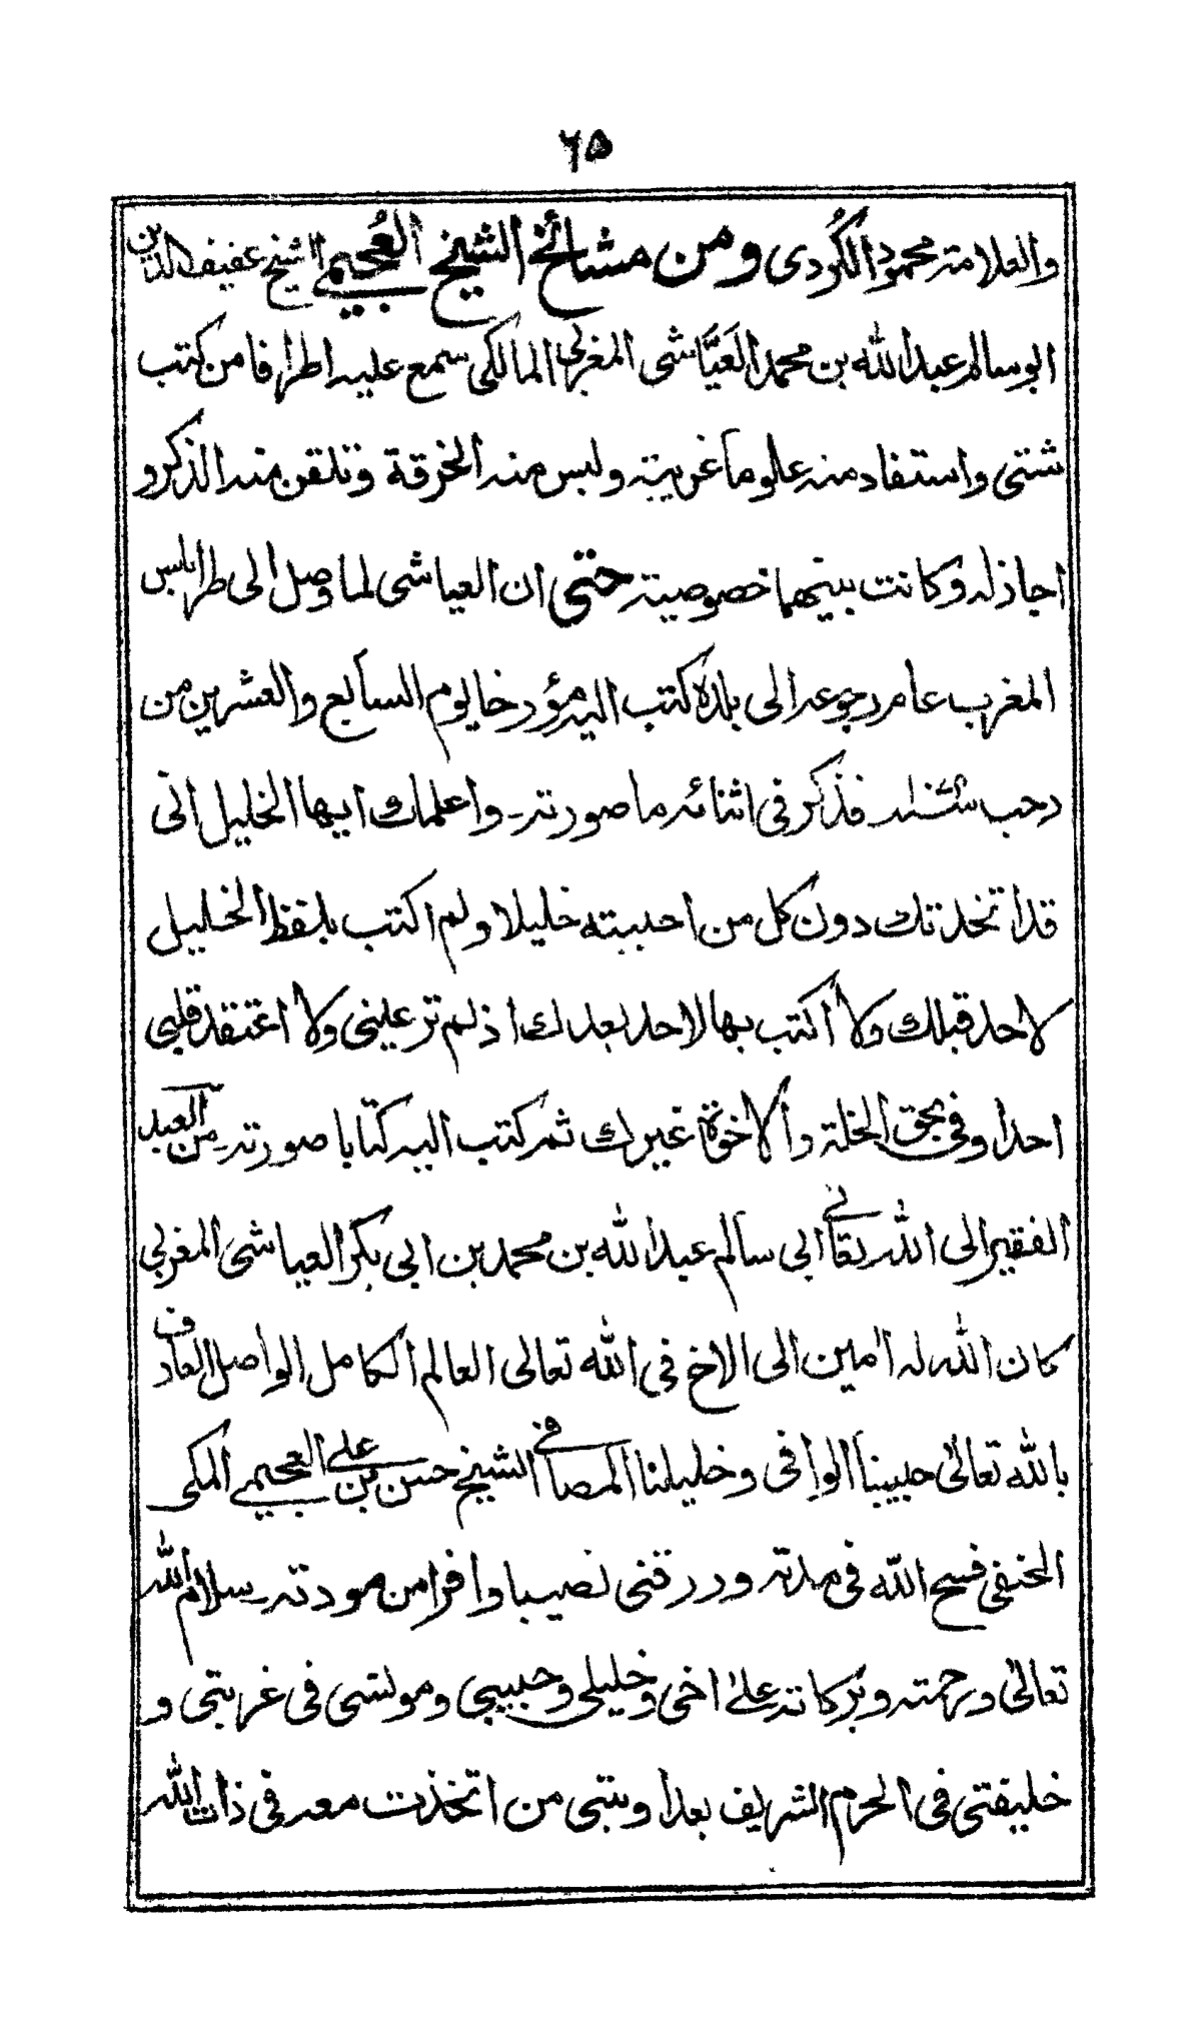 ٦٥
والعلامة محمود الكُردى ومن مشائخ الشيخ العُجيمى الشيخ عفيف الدين
ابوسالم عبد الله بن محمد العَيَّاشى المغربى المالكى سمع عليه اطرافا من كتب
شتى واستفاد منه علوما غريبة ولبس منه الخرقة وتلقن منه الذكر و
اجازله وكانت بينهما خصوصية حتى ان العياشى لما وصل الى طرابلس
المغرب عام رجوعه الى بلده كتب اليه مؤرخا ليوم السابع والعشرين من
رجب فذكر فى اثنائه ما صورته واعلمك ايها الخليل انى
قد اتخذتك دون كل من احببته خليلا ولم اكتب بلفظ الخليل
لاحد قبلك ولا أكتب بها لاحد بعدك اذ لم تر عينى ولا اعتقد قلبى
احدا وفى بحق الخلة والاخوة غيرك ثم كتب اليه كتابا صورته من العبد
الفقير الى الله تعالى ابى سالم عبد الله بن محمد بن ابى بكر العياشى المغربى
كان الله له امين الى الاخ فى الله تعالى العالم الكامل الواصل العارف
بالله تعالى حبيبنا الوافى وخليلنا المصافى الشيخ حسن بن على العجيمى المكى
الحنفى فسح الله فى مدته ورزقنى نصيبا وافرا من مودته سلام الله
تعالى ورحمته وبركاته على اخى وخليلى وحبيبى ومونسى فى غربتى و
خليفتى فى الحرم الشريف بعد اوبتى من اتخذت معه فى ذات الله